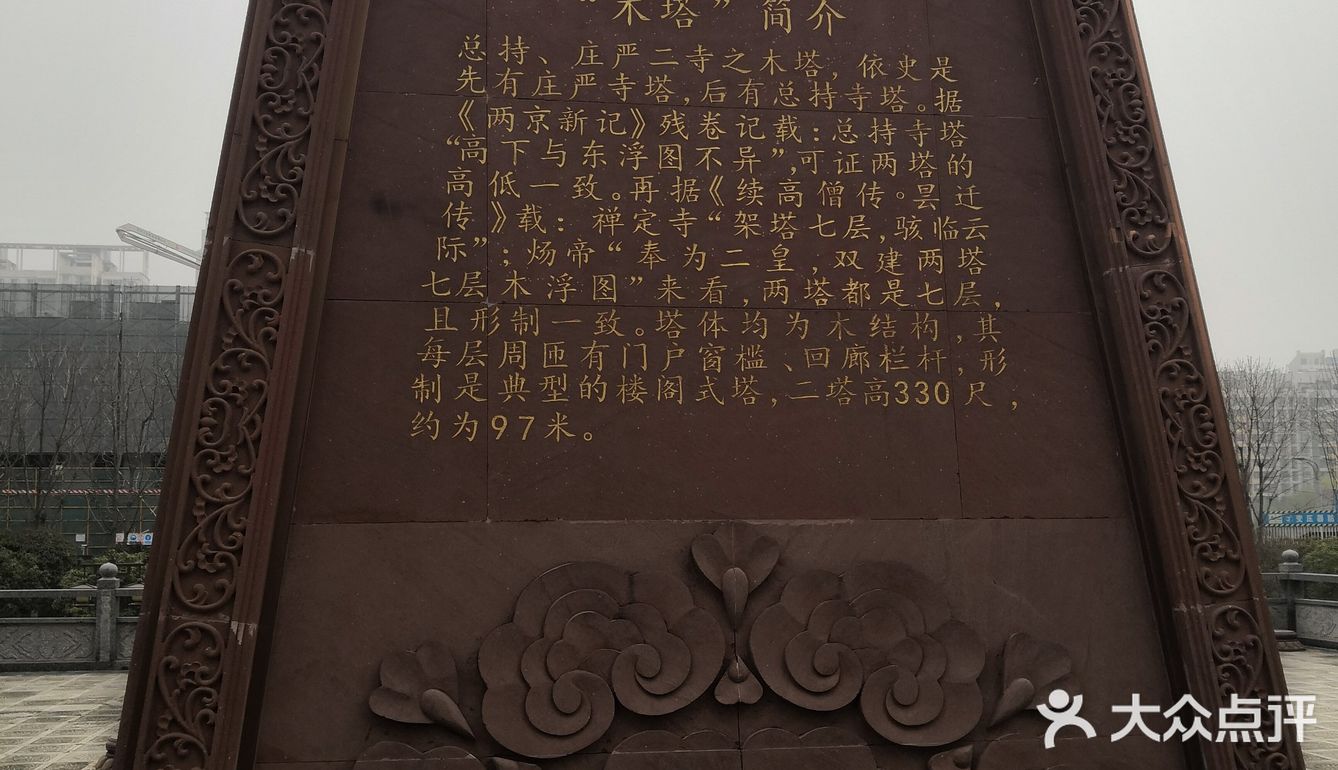 “木塔”简介
总持、庄严二寺之木塔，依史是
先有庄严寺塔，后有总持寺塔。据
《两京新记》残卷记载：总持寺塔
“高下与东浮图不异”，可证两塔的
高低一致。再据《续高僧传·昙迁
传》载：禅定寺“架塔七层，骇临云
际”；炀帝“奉为二皇，双建两塔
七层木浮图”来看，两塔都是七层，
且形制一致。塔体均为木结构，其
每层周匝有门户窗槛、回廊栏杆，形
制是典型的楼阁式塔，二塔高330尺，
约为97米。
大众点评